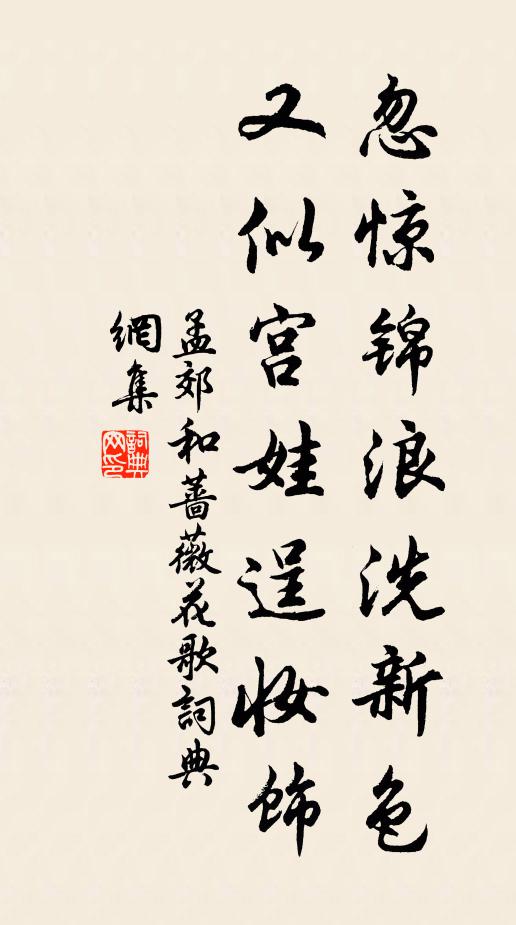 忽惊锦浪洗新色
又似宫娃逞妆饰
孟郊和蔷薇花歌詞典
網集
詞典网印